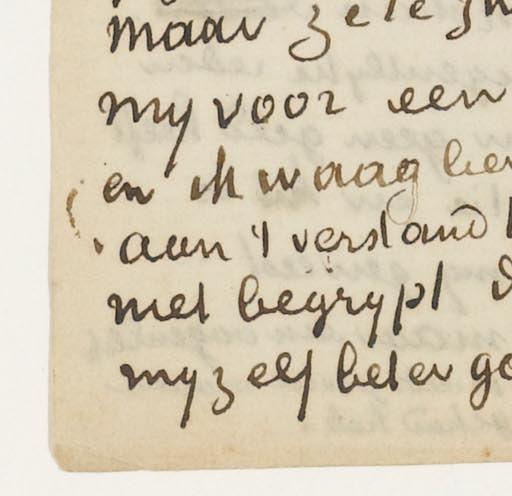 maar
my voor een
en ik waag
aan 't verstand
met begrypt
myzelf beter